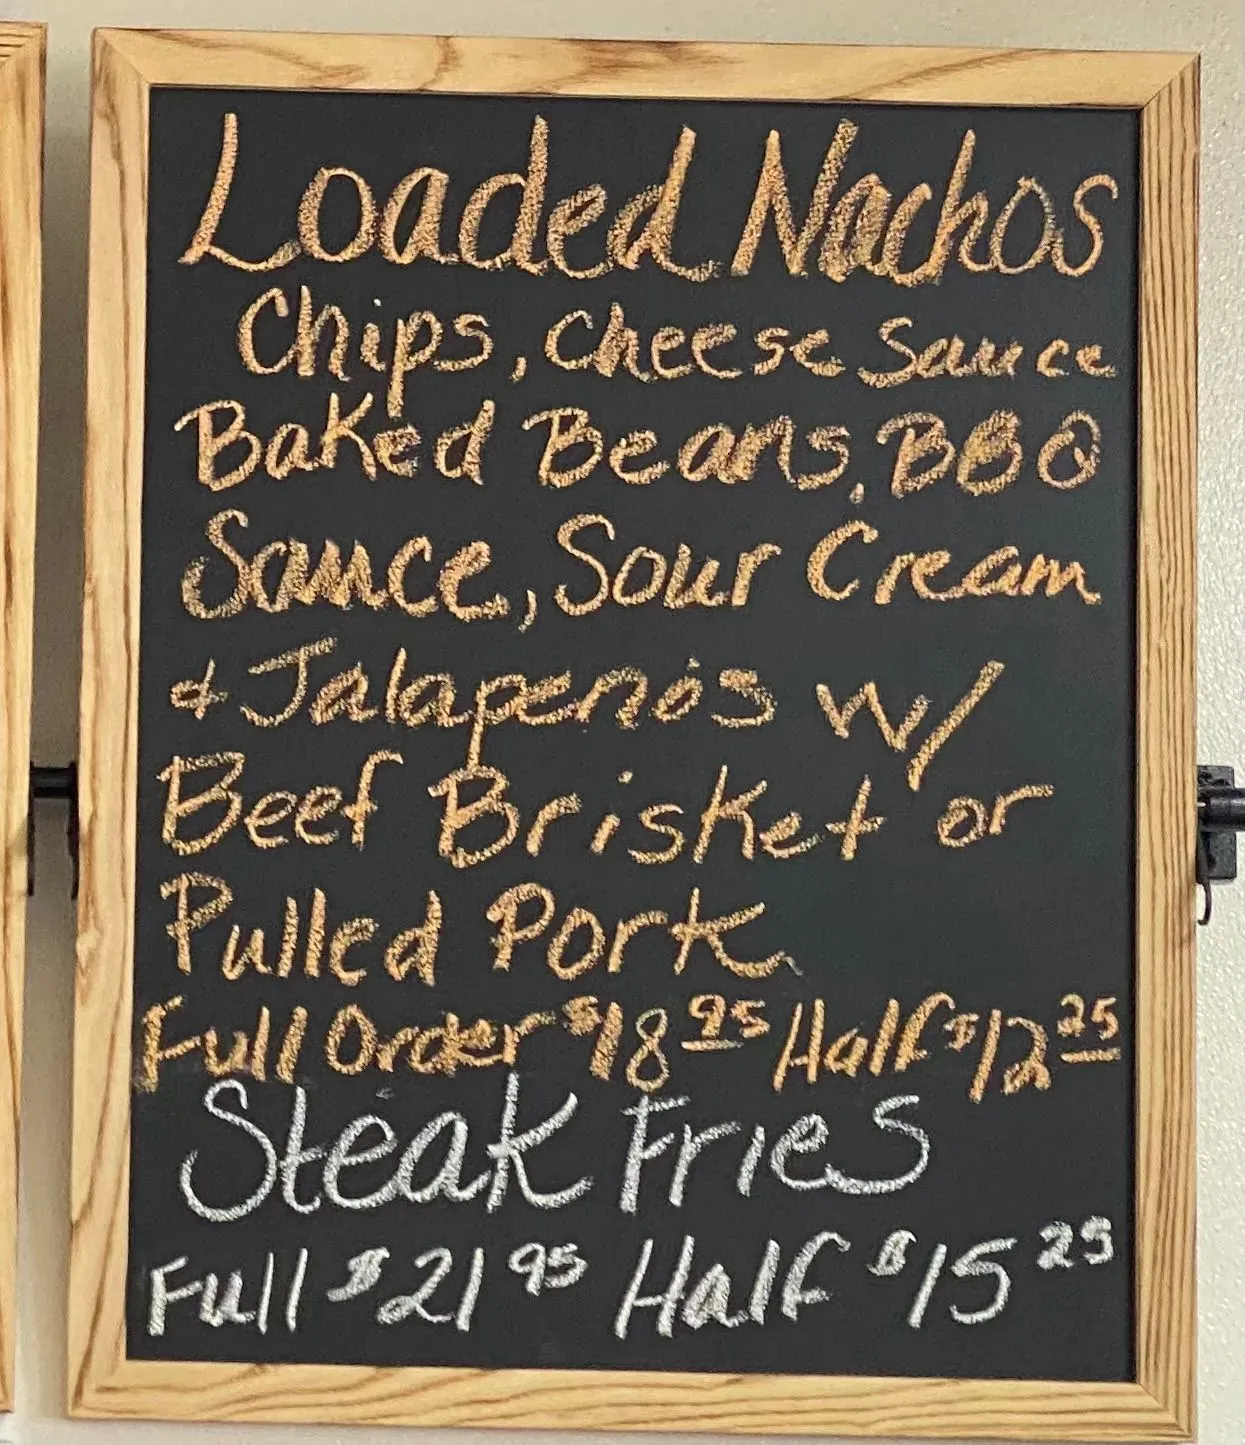 Loaded Nachos
Chips, Cheese Sauce
Baked Beans, BBQ
Sauce, Sour Cream
& Jalapenos w/
Beef Brisket or
Pulled Pork
Full Order $18 95 Half $12 25
Steak Fries
Full $21 95 Half $15 25